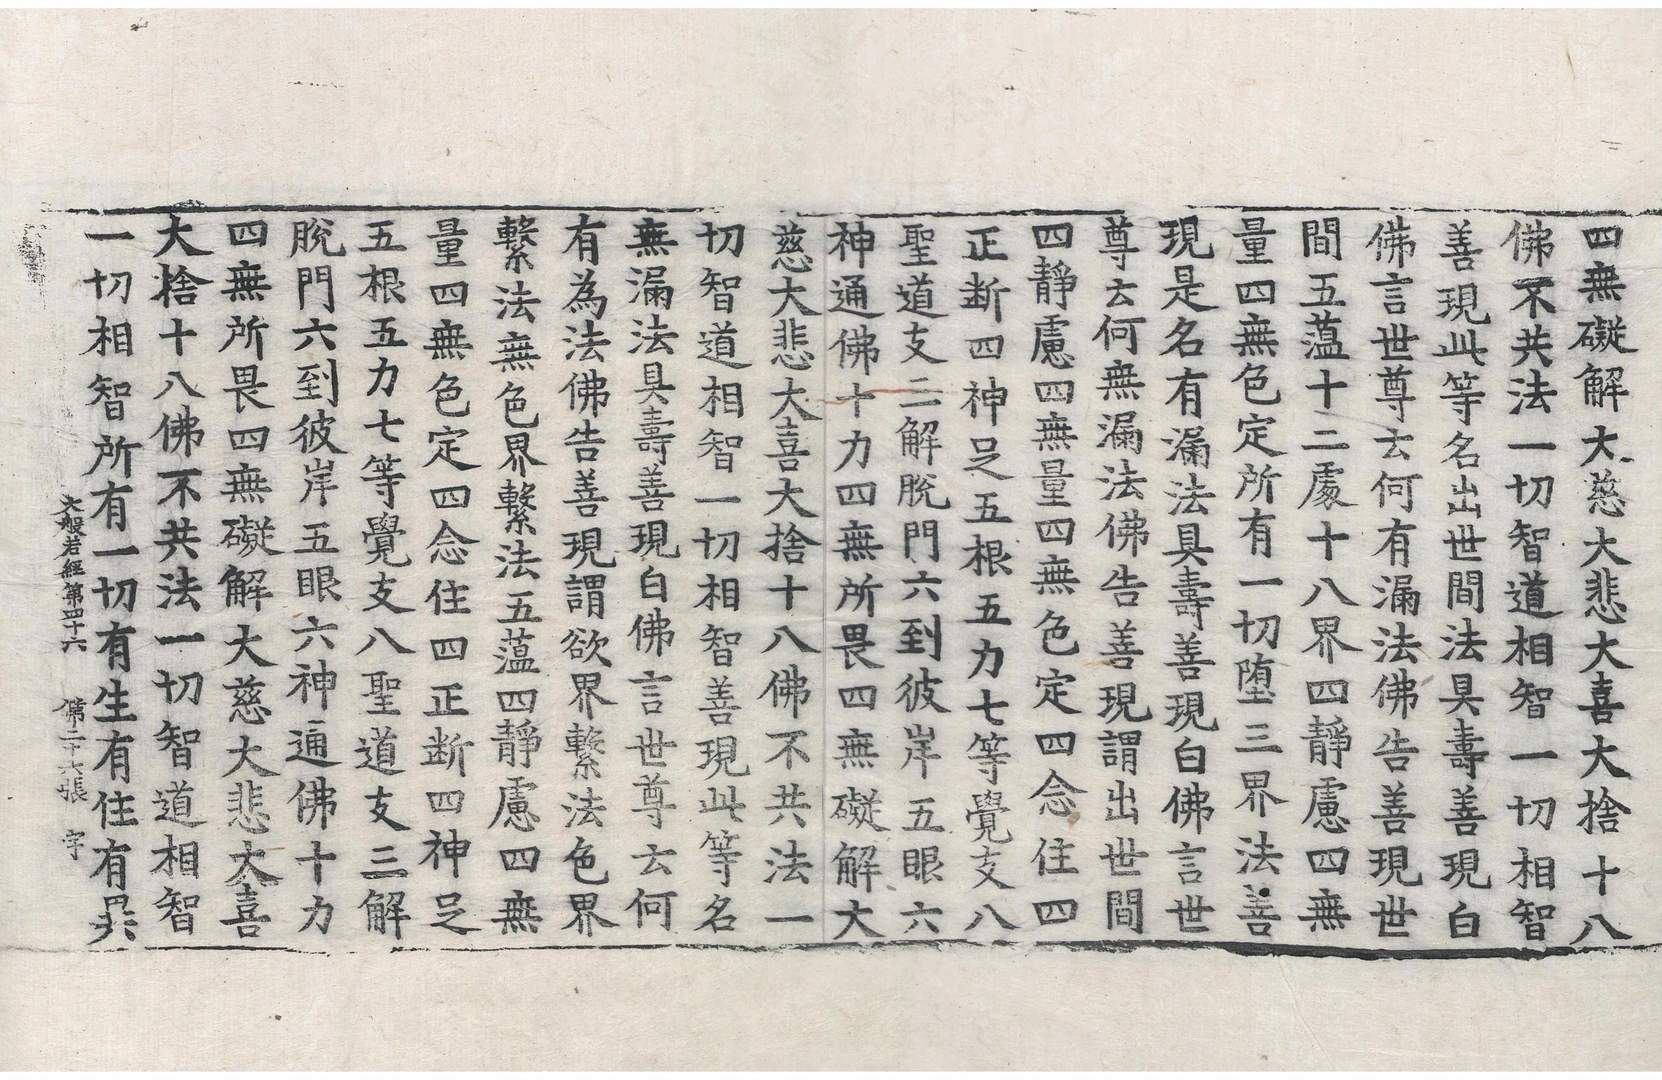 四無礙解大慈大悲大喜大捨十八
佛不共法一切智道相智一切相智
善現此等名出世間法具壽善現白
佛言世尊云何有漏法佛告善現世
間五蘊十二處十八界四靜慮四無
量四無色定所有一切墮三界法善
現是名有漏法具壽善現白佛言世
尊云何無漏法佛告善現謂出世間
四靜慮四無量四無色定四念住四
正断四神足五根五力七等覺支八
聖道支三解脫門六到彼岸五眼六
神通佛十力四無所畏四無礙解大
慈大悲大喜大捨十八佛不共法一
切智道相智一切相智善現此等名
無漏法具壽善現白佛言世尊云何
有為法佛告善現謂欲界繫法色界
繫法無色界繫法五蘊四靜慮四無
量四無色定四念住四正断四神足
五根五力七等覺支八聖道支三解
脫門六到彼岸五眼六神通佛十力
四無所畏四無礙解大慈大悲大喜
大捨十八佛不共法一切智道相智
一切相智所有一切有生有住有異
大般若經第四十六 第二十六張 字